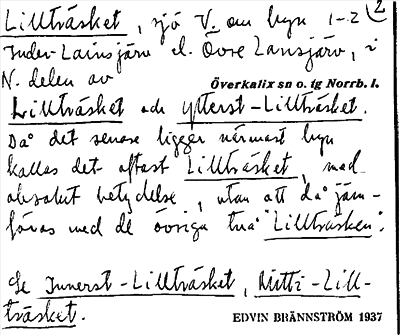 Lillträsket, sjö V. om byn 1-2 (2
Inder-Lainsjärv el. Övre Lansjärv, i
N. delen av
Överkalix sn o. tg Norrb. l.
Lillträsket och Ytterst-Lillträsket.
Då det senare ligger närmast byn
kallas det oftast Lillträsket, med
absolut betydelse, utan att då jäm-
föras med de övriga två "Lillträsken".
Se Innerst-Lillträsket, Mitti-Lill-
träsket.
EDVIN BRÄNNSTRÖM 1937